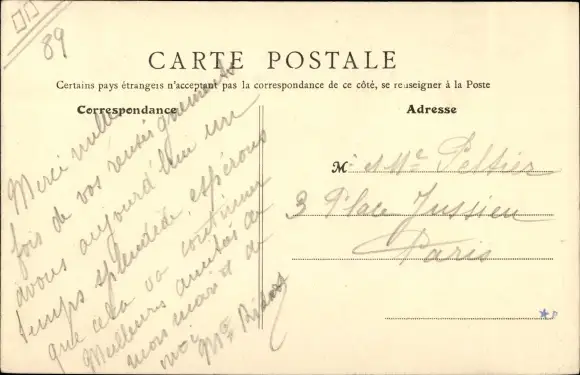 89
CARTE POSTALE
Certains pays étrangers n'acceptant pas la correspondance de ce côté, se renseigner à la Poste
Correspondance
Adresse
Merci mille
fois de vos renseignements
avons aujourd'hui un
temps splendide, espérons
que cela va continuer
Meilleures amitiés de
mon mari et de
moi
M. Mme Peltier
3 Place Jussieu
Paris